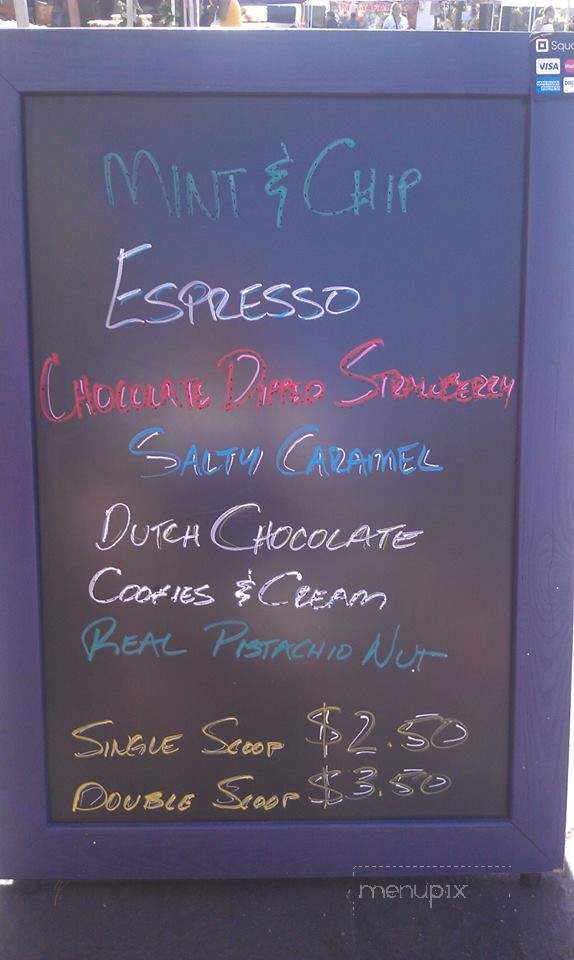 Squa
VISA
MINT & CHIP
ESPRESSO
CHOCOLATE DIPPED STRAWBERRY
SALTY CARAMEL
DUTCH CHOCOLATE
COOKIES & CREAM
REAL PISTACHIO NUT
SINGLE SCOOP $2.50
DOUBLE SCOOP $3.50
menupix